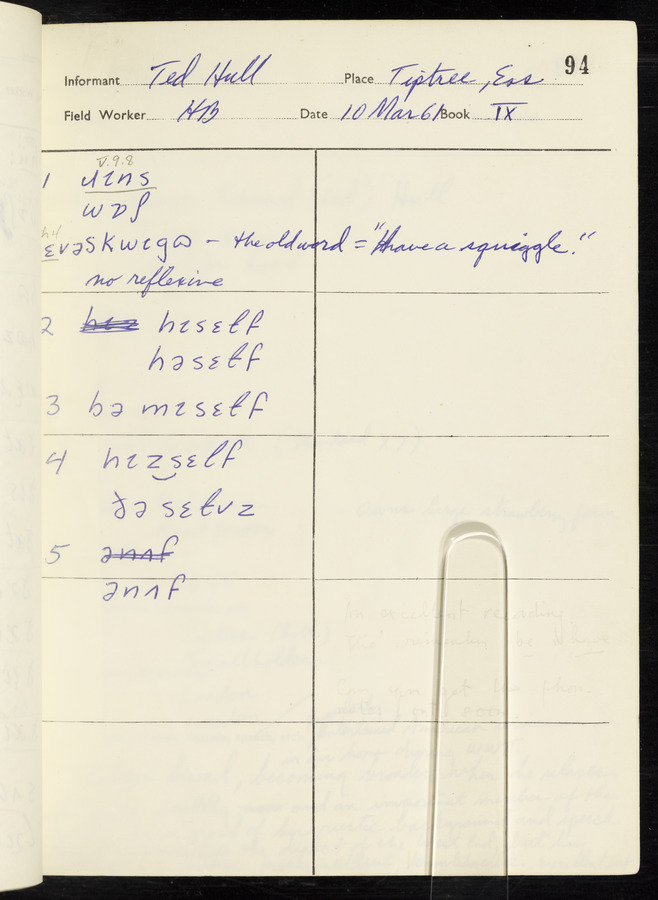 94
Informant Ted Hull Place Tiptree, Ess
Field Worker HB Date 10 Mar 61 Book IX
V.9.8
1 ɹɪns
wɒʃ
ɛvəskwɪgɷ – the old word = "have a squiggle."
no reflexive
2 hɪsɛɫf
həsɛɫf
3 bə mɪsɛɫf
4 hɪzsɛlf
ðəsɛɫvz
5 ənʌf
ənʌf